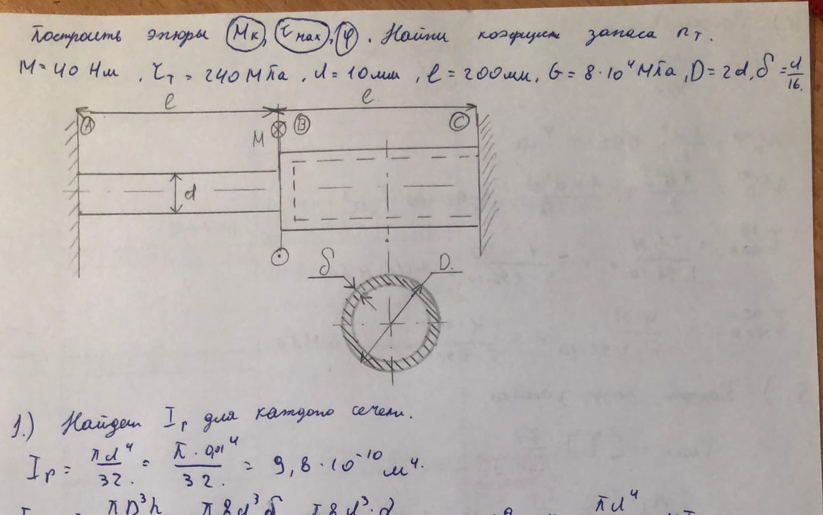 Построить эпюры Mк, τmax, φ. Найти коэфициент запаса nт.
M = 40 Нм, τт = 240 МПа, d = 10 мм, l = 200 мм, G = 8·10⁴ МПа, D = 2d, δ = d/16.
l l
A M B C
d
δ D.
1.) Найдем Ip для каждого сечен.
Ip = πd⁴/32 = π·0,01⁴/32 = 9,8·10⁻¹⁰ м⁴.